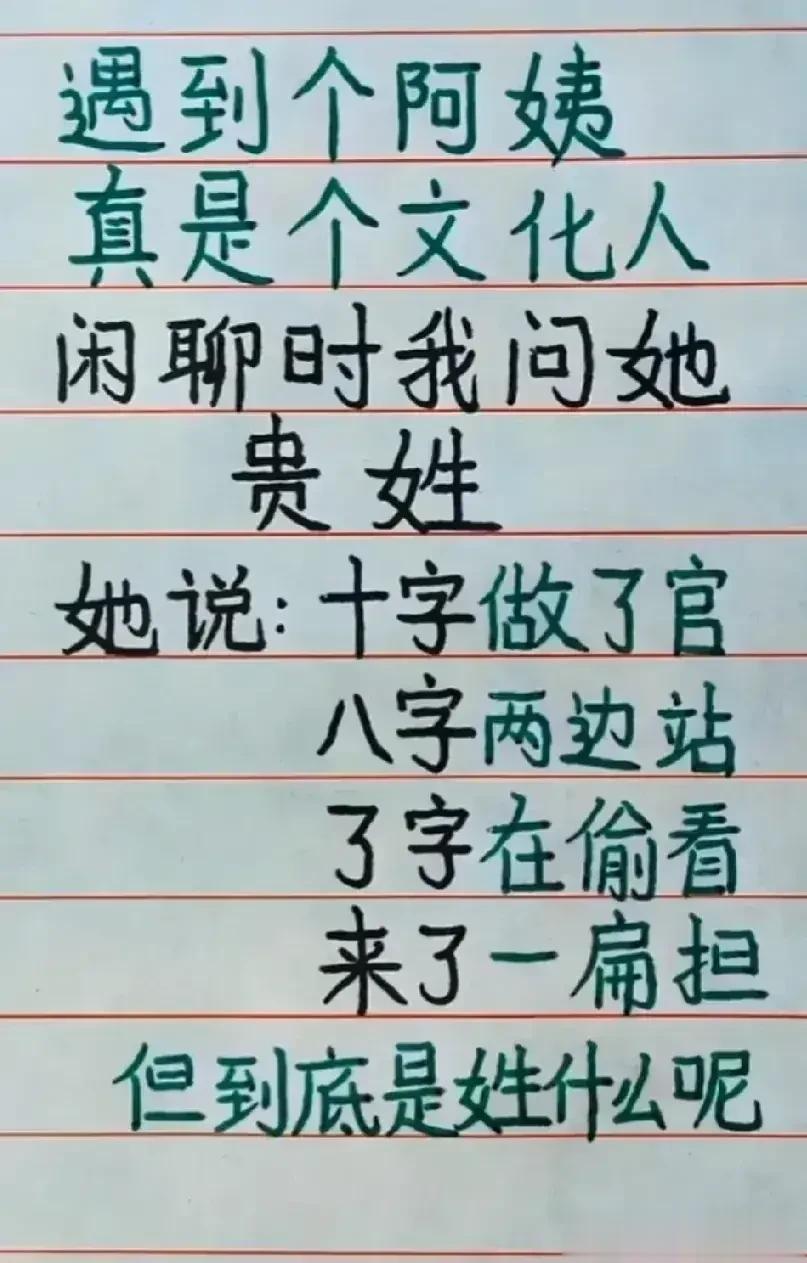 遇到个阿姨
真是个文化人
闲聊时我问她
贵姓
她说:十字做了官
八字两边站
了字在偷看
来了一扁担
但到底是姓什么呢